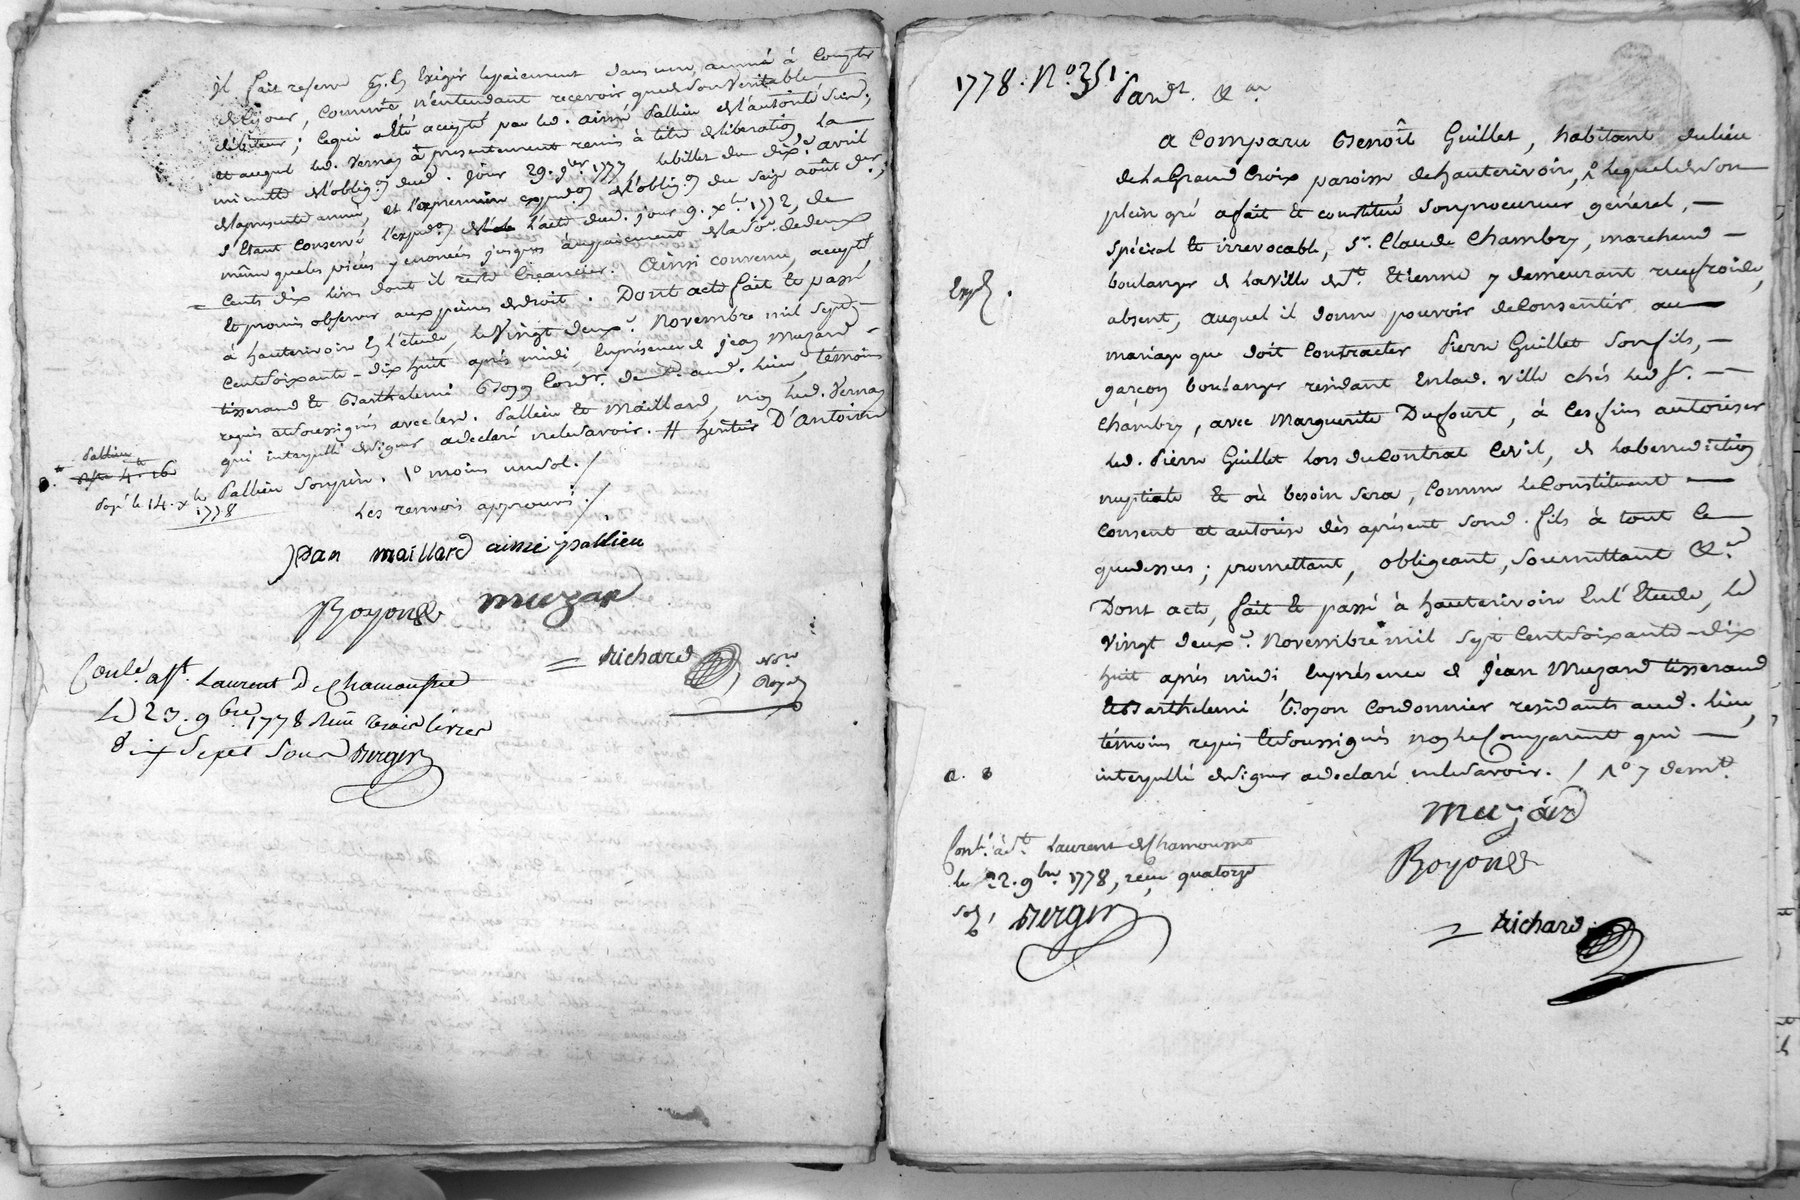 il fait reserve d'en exiger le paiement dans une année à compter
de ce jour, comme n'entendant recevoir que de son veritable
débiteur; ce qui a été accepté par led. aimé Pallieu de l'autorité susd.;
et auquel led. Vernay a presentement remis à titre de liberation la
minutte de l'oblig.on dud. jour 29. 9.bre 1777 le billet du dix.e avril
de la presente année, et l'expédon de l'oblig.on du seize août der;
s'étant conservé l'expedon de l'acte dud. jour 9. x.bre 1772, de
même que les pièces y enoncées jusques au paiement de la so. de deux
cents dix livres dont il reste créancier. Ainsi convenu, accepté
et promis observer aux peines de droit. Dont acte fait et passé
à hauterivoire en l'étude, le vingt deux.e Novembre mil sept
cent soixante-dix huit après midi en présence de Jean Muzard
tisserand et Barthelemi Boyon Cord.r dem.t aud. lieu, témoins
requis et soussignés avec lesd. Pallieu et Maillard, non led. Vernay
qui interpellé de signer a declaré ne le savoir. # heritier D'Antoine
Pallieu son père. 1° moins un sol. /
Les renvois approuvés /.
Pallieu
Payé le 14. x.bre
1778
Jean maillard aimé pallieu
Boyon muzar
= Richard No.re
Royal
Con.lé à St. Laurent De Chamousset
Le 23. 9bre 1778 Reçu treize livres
dix Sept Sous Berger
1778. N° 351.
Pardt. &ar
A Comparu Benoît Guillet, habitant du lieu
de la Grand Croix paroisse de hauterivoire, lequel de son
plein gré a fait et constitué son procureur général, —
spécial et irrevocable, Sr. Claude Chambry, marchand —
boulanger de la Ville de St. Etienne y demeurant rue froide,
Expd.
absent, auquel il donne pouvoir de Consentir au —
mariage que doit contracter Pierre Guillet son fils, —
garçon boulanger residant en lad. ville chés led. Sr. —
Chambry, avec Marguerite Dufourt, à ces fins autoriser
led. Pierre Guillet lors du Contrat Civil, et la benediction
nuptiale et où besoin sera, comme le Constituant —
consent et autorise dès à présent sond. fils à tout ce
que dessus; promettant, obligeant, soumettant &c.
Dont acte, fait et passé à hauterivoire en l'Etude, le
vingt deux.e Novembre mil sept cent soixante-dix
huit après midi en présence de Jean Muzard tisserand
et Barthelemi Boyon cordonnier residants aud. lieu,
témoins requis et soussignés non le Comparant qui —
interpellé de signer a declaré ne le savoir. /
muzard
Boyon
= Richard
Con.lé à St. Laurent de Chamousset
le 22. 9bre 1778, reçu quatorze
sols, Berger